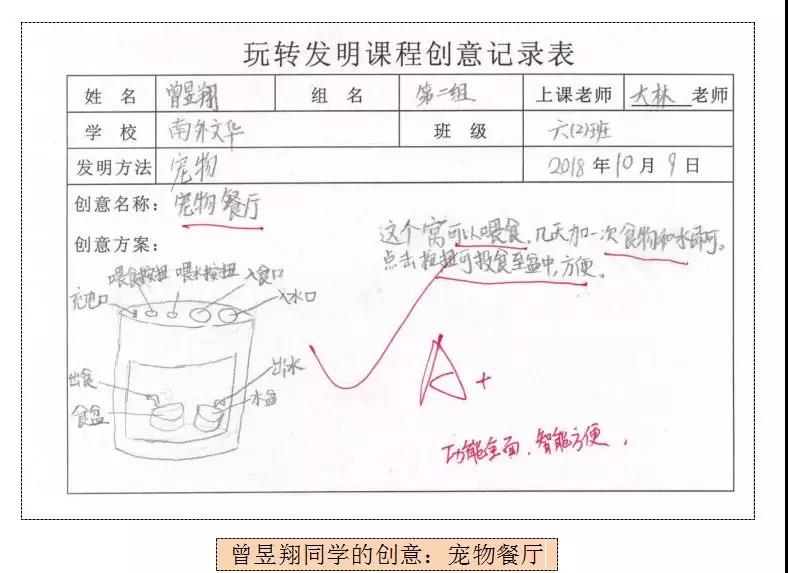 玩转发明课程创意记录表
姓 名 曾昱翔 组 名 第二组 上课老师 大林 老师
学 校 南外文华 班 级 六(2)班
发明方法 宠物 2018 年 10 月 9 日
创意名称：宠物餐厅
创意方案：
这个窝可以喂食，几天加一次食物和水即可。
点击按扭可投食至盆中，方便。
喂食按扭 喂水按扭 入食口
充电口 入水口
出食 出水
食盆 水盆
A+
功能全面，智能方便，
曾昱翔同学的创意：宠物餐厅